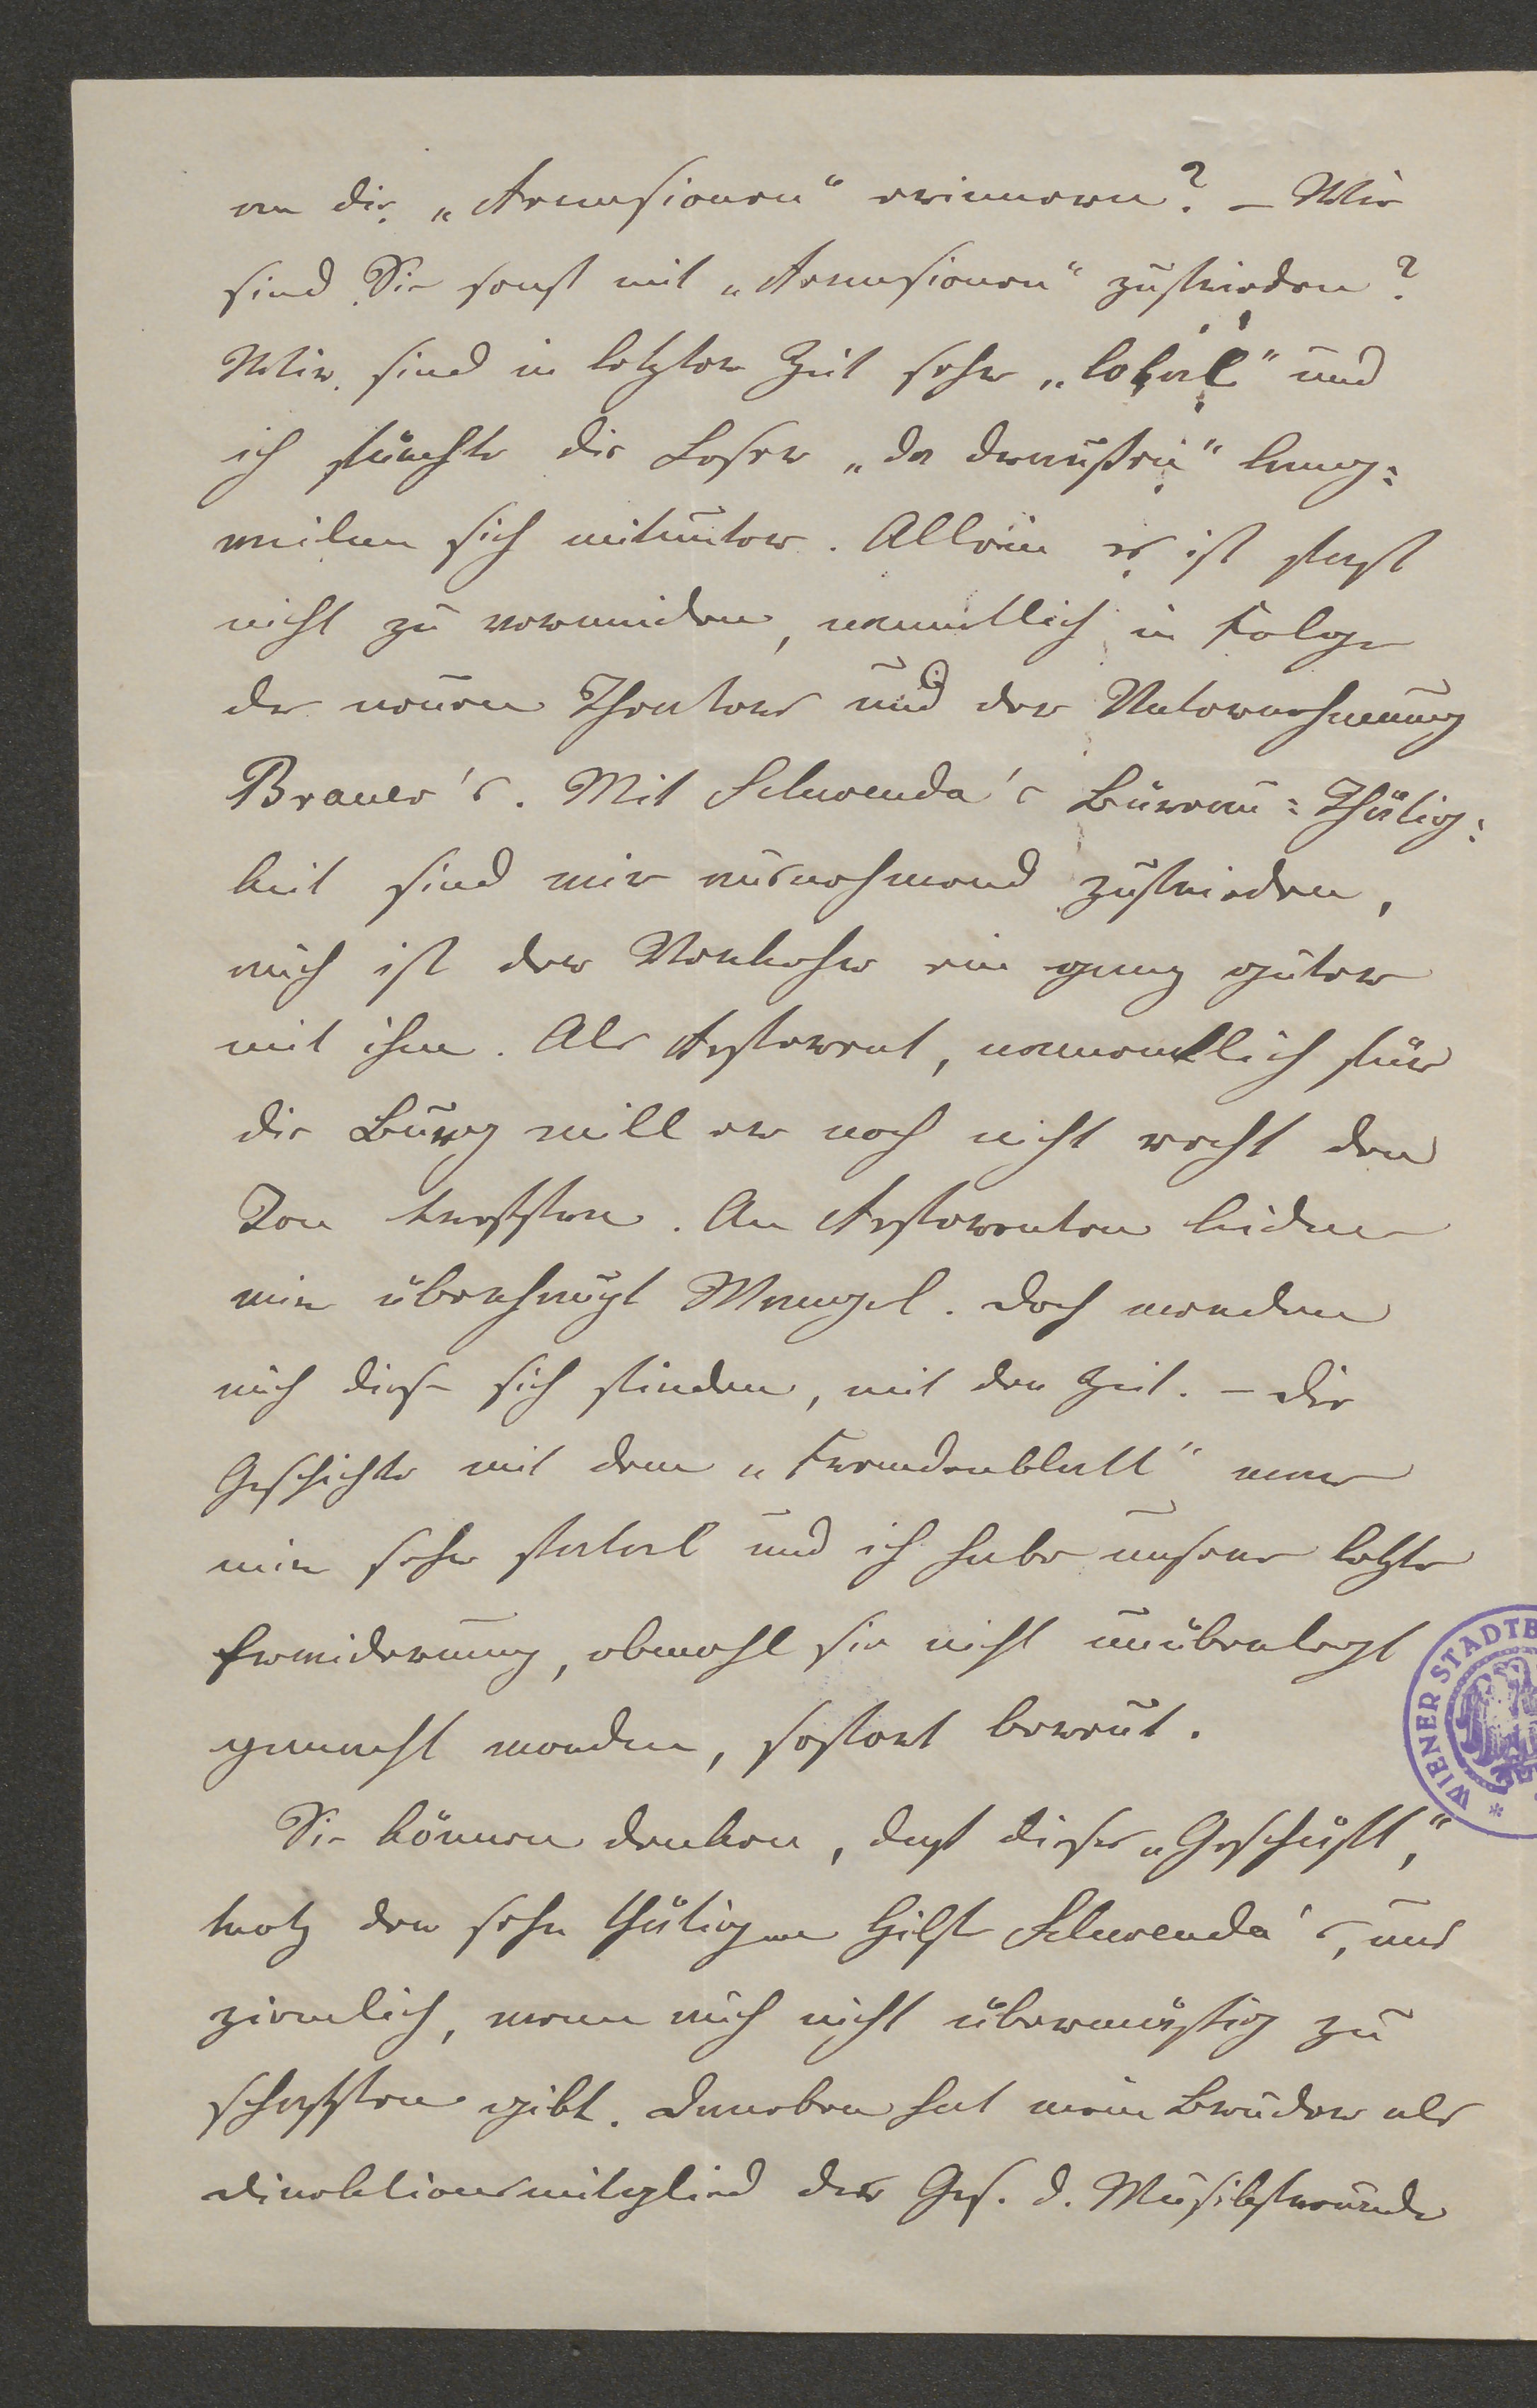 an die „Recensionen" erinnern? – Wie
sind Sie sonst mit „Recensionen" zufrieden?
Wir sind in letzter Zeit sehr „lokal" und
ich fürchte die Leser „da draußen" lang=
weilen sich mitunter. Allein es ist fast
nicht zu vermeiden, namentlich in Folge
der neuen Theater und der Unternehmung
Brauer's. Mit Schwenda's Bureau=Thätig=
keit sind wir ausnehmend zufrieden,
auch ist der Verkehr ein ganz guter
mit ihm. Als Referent, namentlich für
die Burg will er noch nicht recht den
Ton treffen. An Referenten leiden
wir überhaupt Mangel. Doch werden
auch diese sich finden, mit der Zeit. – Die
Geschichte mit dem „Fremdenblatt" war
mir sehr fatal und ich habe unsere letzte
Erwiderung, obwohl sie nicht unüberlegt
gemacht worden, sofort bereut.
Sie können denken, daß dieses „Geschäft",
trotz der sehr thätigen Hilfe Schwenda's, uns
ziemlich, wenn auch nicht übermäßig zu
schaffen gibt. Daneben hat mein Bruder als
Direktionsmitglied der Ges. d. Musikfreunde
WIENER STADTB